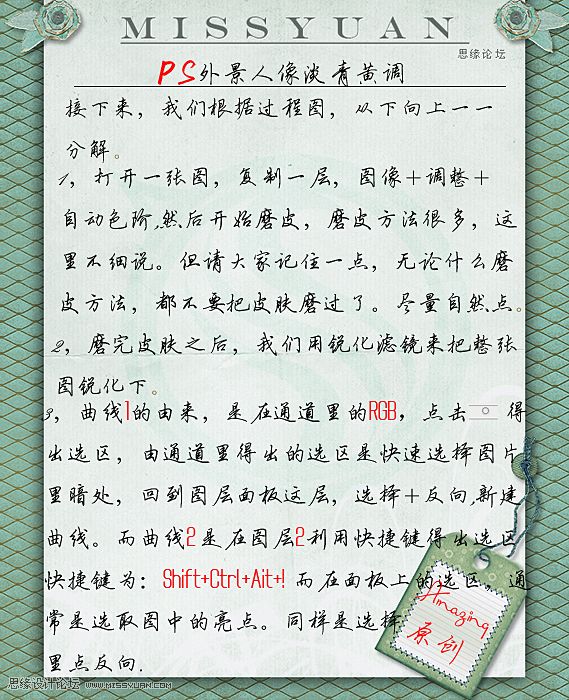 MISSYUAN
思缘论坛
PS外景人像淡青黄调
接下来，我们根据过程图，从下向上一一
分解。
1，打开一张图，复制一层，图像＋调整＋
自动色阶,然后开始磨皮，磨皮方法很多，这
里不细说。但请大家记住一点，无论什么磨
皮方法，都不要把皮肤磨过了。尽量自然点。
2，磨完皮肤之后，我们用锐化滤镜来把整张
图锐化下。
3，曲线1的由来，是在通道里的RGB，点击 得
出选区，由通道里得出的选区是快速选择图片
里暗处，回到图层面板这层，选择＋反向,新建
曲线。而曲线2是在图层2利用快捷键得出选区
快捷键为：Shift+Ctrl+Ait+! 而在面板上的选区，通
常是选取图中的亮点。同样是选择
里点反向.
Amazing
原创
思缘设计论坛 WWW.MISSYUAN.COM